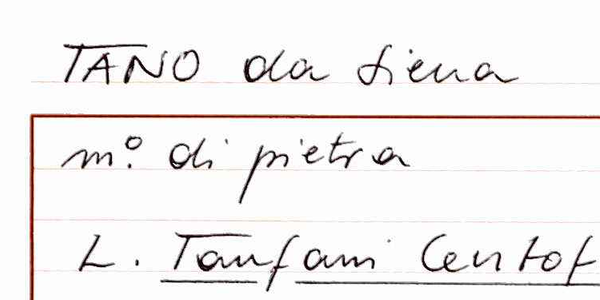 TANO da Siena
m.º di pietra
L. Tanfani Centof